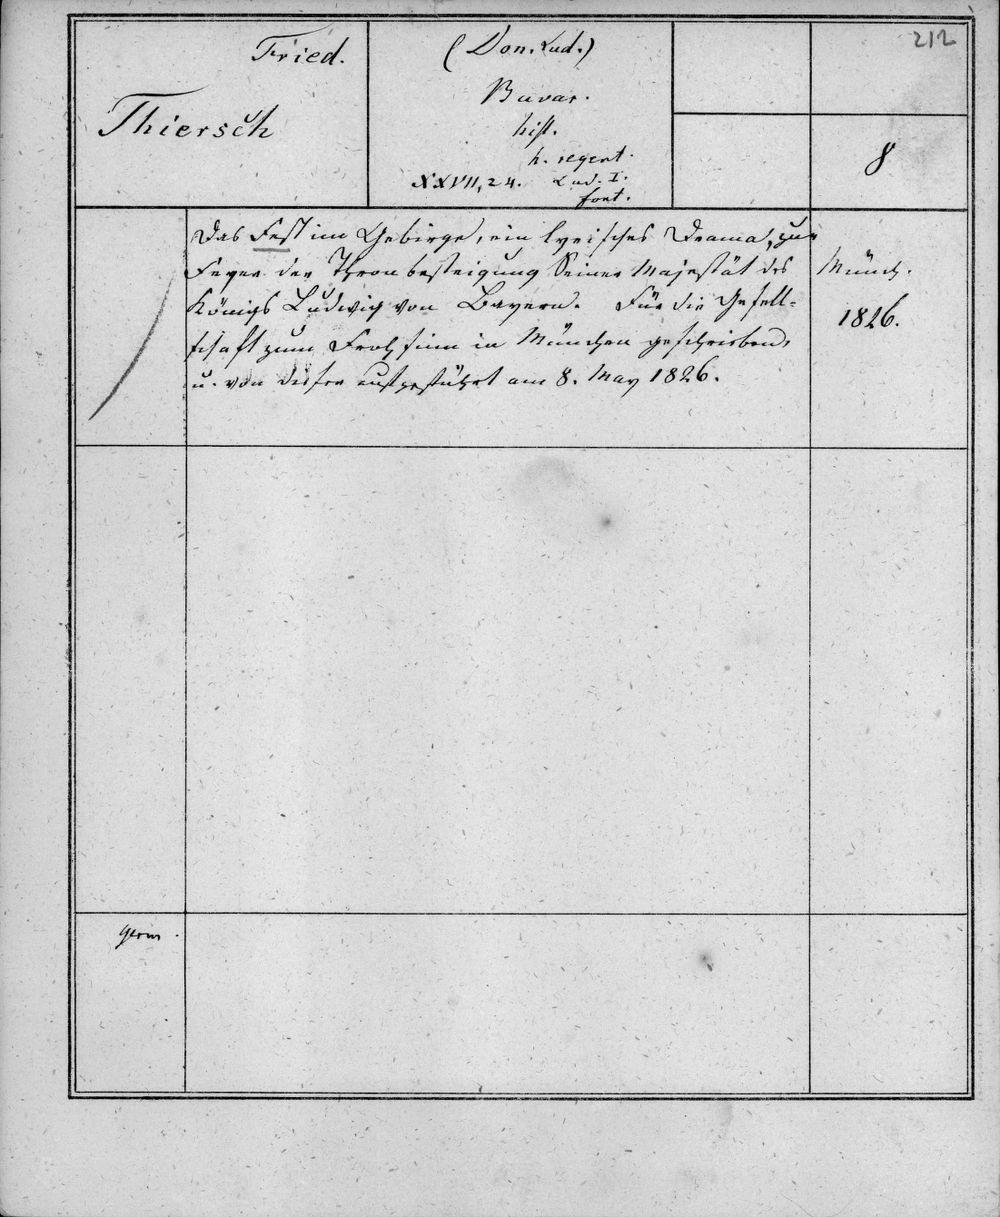 212
Fried.
Thiersch
(Don. Lud.)
Bavar.
hist.
h. regent.
XXVII, 24. Lud. I.
8
Das Fest im Gebirge, ein lyrisches Drama, zur
Feyer der Thronbesteigung Seiner Majestät des
Königs Ludwig von Bayern. Für die Gesell-
schaft zum Frohsinn in München geschrieben,
u. von dieser aufgeführt am 8. May 1826.
Münch.
1826.
germ.